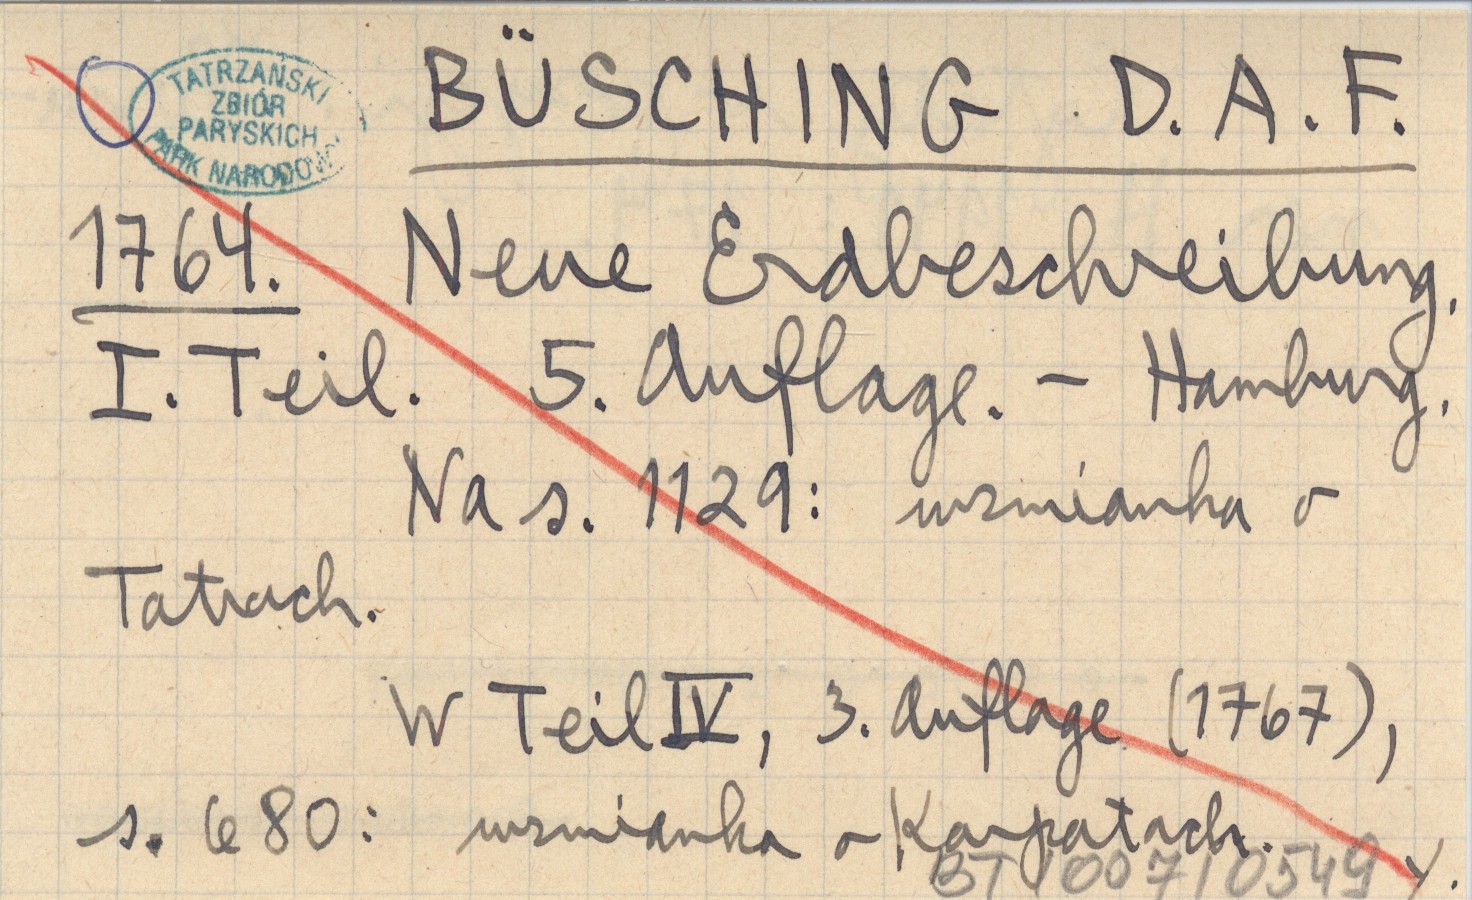 TATRZAŃSKI
ZBIÓR
PARYSKICH
PARK NARODOWY
BÜSCHING D. A. F.
1764. Neue Erdbeschreibung.
I. Teil. 5. Auflage. - Hamburg.
Na s. 1129: wzmianka o
Tatrach.
W Teil IV, 3. Auflage (1767),
s. 680: wzmianka o Karpatach.
BT/007/0549 y.